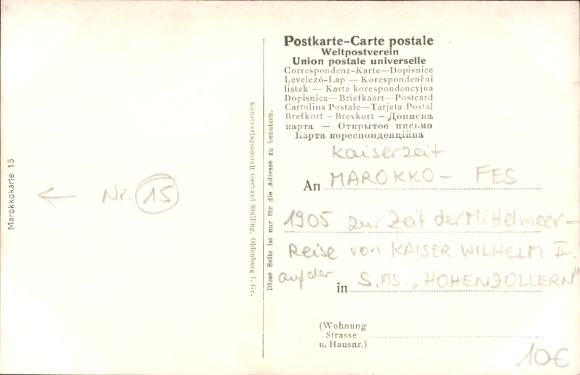 Marokkokarte 15
← Nr. 15
Kunstverlagsanstalt Gerhard Stalling, Oldenburg i. Gr.
Diese Seite ist nur für die Adresse zu benutzen.
Postkarte—Carte postale
Weltpostverein
Union postale universelle
Correspondenz-Karte—Dopisnice
Levelező-Lap — Korespondenční
listek — Karte korespondencyjna
Dopisnica—Briefkaart—Postcard
Cartolina Postale—Tarjeta Postal
Brefkort - Brevkort - Дописна
карта — Открытое письмо
Карта кореспонденційна
Kaiserzeit
An MAROKKO - FES
1905 zur Zeit der Mittelmeer-
Reise von KAISER WILHELM II.
auf der in S.MS „HOHENZOLLERN"
(Wohnung
Strasse
u. Hausnr.)
10€